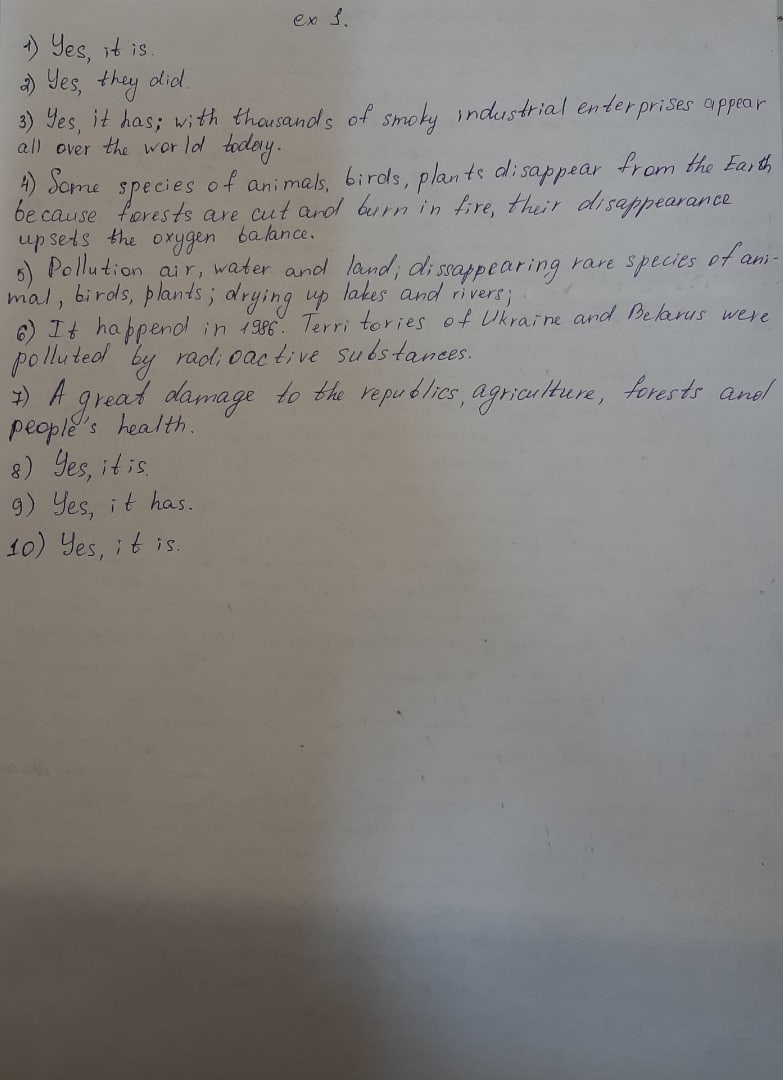 ex 1.
1) Yes, it is.
2) Yes, they did.
3) Yes, it has; with thousands of smoky industrial enterprises appear
all over the world today.
4) Some species of animals, birds, plants disappear from the Earth
because forests are cut and burn in fire, their disappearance
upsets the oxygen balance.
5) Pollution air, water and land; dissappearing rare species of ani-
mal, birds, plants; drying up lakes and rivers;
6) It happend in 1986. Territories of Ukraine and Belarus were
polluted by radioactive substances.
7) A great damage to the republics, agriculture, forests and
people's health.
8) Yes, it is.
9) Yes, it has.
10) Yes, it is.